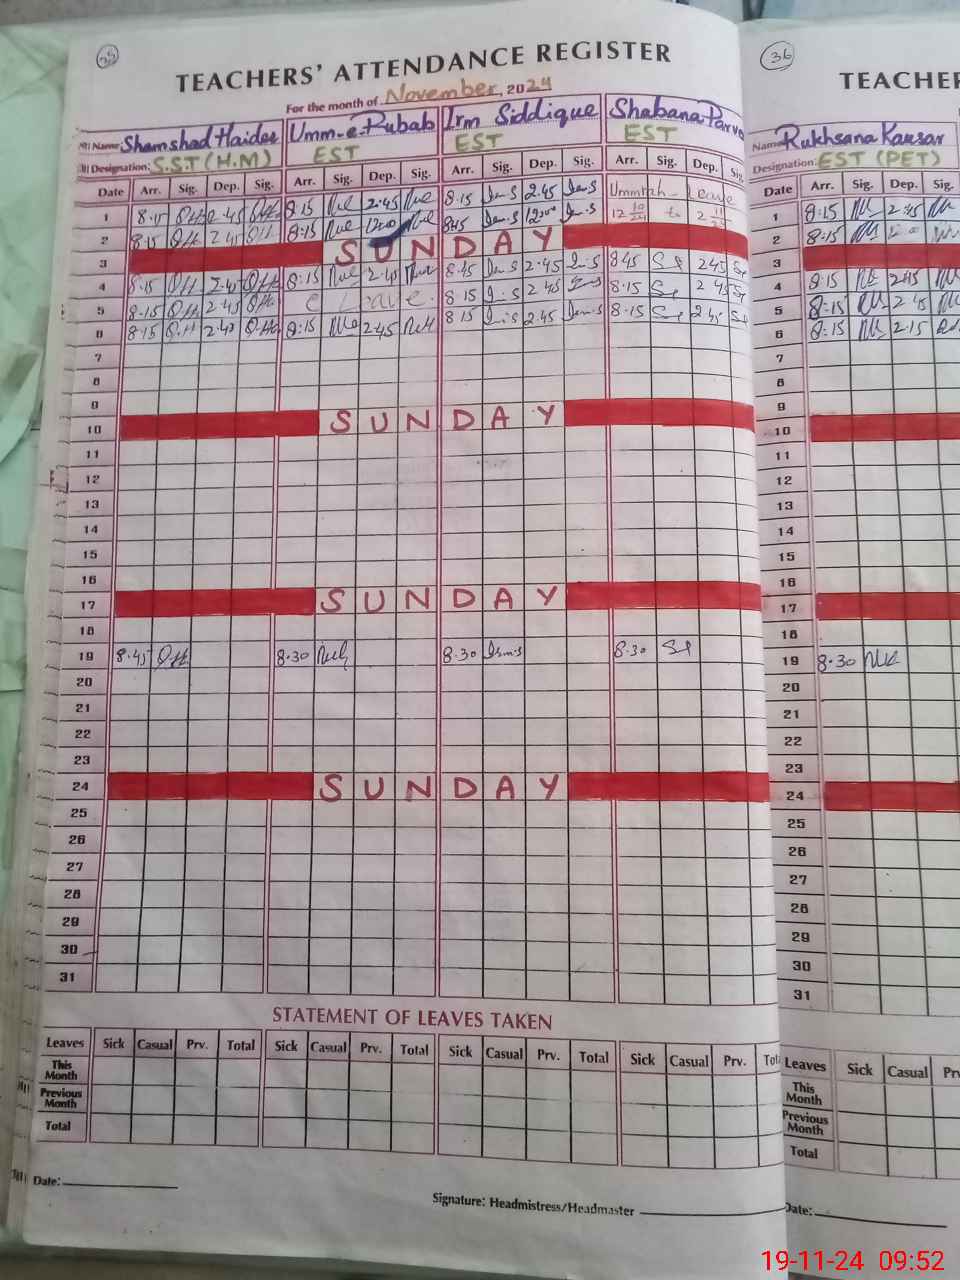 35
TEACHERS' ATTENDANCE REGISTER
For the month of November, 2024
Name Shamshad Haider Umm-e-Rubab Irm Siddique Shabana Parv
Designation: S.S.T (H.M) EST EST EST
Date Arr. Sig. Dep. Sig. Arr. Sig. Dep. Sig. Arr. Sig. Dep. Sig. Arr. Sig. Dep. Sig.
1 8.15 2.45 8.15 2.45 8.15 2.45 Ummrah Leave
2 8.15 2.45 8:15 1200 8:45 1200 12 10/24 to 2 11/24
3 SUNDAY
4 8.15 2.45 8:15 2.45 8.45 2.45 8.45 2.45
5 8.15 2.45 C Leave. 8.15 2.45 8.15 2.45
6 8.15 2.45 8:15 2.45 8.15 2.45 8.15 2.45
7
8
9
10 SUNDAY
11
12
13
14
15
16
17 SUNDAY
18
19 8.45 8.30 8.30 8.30
20
21
22
23
24 SUNDAY
25
26
27
28
29
30
31
STATEMENT OF LEAVES TAKEN
Leaves Sick Casual Prv. Total Sick Casual Prv. Total Sick Casual Prv. Total Sick Casual Prv. Tot
This Month
Previous Month
Total
Date:
Signature: Headmistress/Headmaster
36
TEACHER
Name Rukhsana Kausar
Designation: EST (PET)
Date Arr. Sig. Dep. Sig.
1 8:15 2:45
2 8:15
3
4 8.15 2.45
5 8:15 2.45
6 8:15 2.15
7
8
9
10
11
12
13
14
15
16
17
18
19 8.30
20
21
22
23
24
25
26
27
28
29
30
31
Leaves Sick Casual Pr
This Month
Previous Month
Total
Date:
19-11-24 09:52